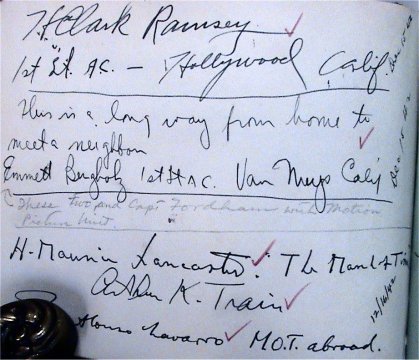 H Clark Ramsey
1st Lt. A.C. – Hollywood Calif.
Dec 10 42
This is a long way from home to
meet a neighbor
Emmett Bergholz 1st Lt AC. Van Nuys Calif
Dec 10 42
These two and Capt Fordham with Motion
Picture Unit.
H. Maurice Lancaster. The March of
Arthur K. Train
12/16/42
Alonso Navarro M.O.T. abroad.